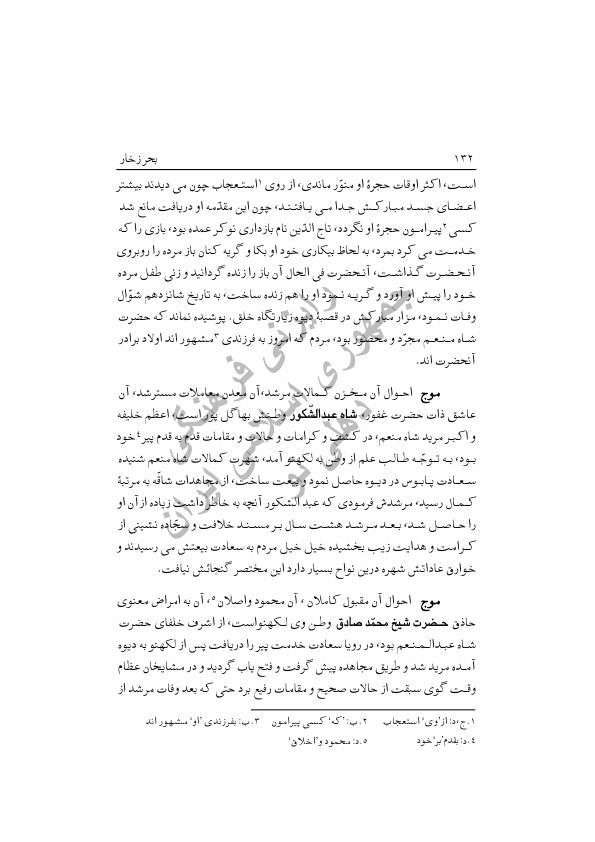 ۱۳۲ بحر زخار
است، اکثر اوقات حجرهٔ او منوّر ماندی، از روی ۱ استعجاب چون می دیدند بیشتر
اعضای جسد مبارکش جدا می یافتند، چون این مقدّمه او دریافت مانع شد
کسی ۲ پیرامون حجرهٔ او نگردد، تاج الدّین نام بازداری نوکر عمده بود، بازی را که
خدمت می کرد بمرد، به لحاظ بیکاری خود او بکا و گریه کنان باز مرده را روبروی
آنحضرت گذاشت، آنحضرت فی الحال آن باز را زنده گردانید و زنی طفل مرده
خود را پیش او آورد و گریه نمود او را هم زنده ساخت، به تاریخ شانزدهم شوّال
وفات نمود، مزار مبارکش در قصبهٔ دیوه زیارتگاه خلق. پوشیده نماند که حضرت
شاه منعم مجرّد و محصور بود، مردم که امروز به فرزندی ۳ مشهور اند اولاد برادر
آنحضرت اند.
موج احوال آن مخزن کمالات مرشد، آن معدن معاملات مسترشد، آن
عاشق ذات حضرت غفور، شاه عبدالشّکور وطنش بهاگل پور است، اعظم خلیفه
و اکبر مرید شاه منعم، در کشف و کرامات و حالات و مقامات قدم به قدم پیر ۴ خود
بود، به توجّه طالب علم از وطن به لکهنو آمد، شهرت کمالات شاه منعم شنیده
سعادت پابوس در دیوه حاصل نمود و بیعت ساخت، از مجاهدات شاقّه به مرتبهٔ
کمال رسید، مرشدش فرمودی که عبدالشکور آنچه به خاطر داشت زیاده از آن او
را حاصل شد، بعد مرشد هشت سال بر مسند خلافت و سجّاده نشینی از
کرامت و هدایت زیب بخشیده خیل خیل مردم به سعادت بیعتش می رسیدند و
خوارق عاداتش شهره درین نواح بسیار دارد این مختصر گنجائش نیافت.
موج احوال آن مقبول کاملان، آن محمود واصلان ۵، آن به امراض معنوی
حاذق حضرت شیخ محمّد صادق وطن وی لکهنواست، از اشرف خلفای حضرت
شاه عبدالمنعم بود، در رویا سعادت خدمت پیر را دریافت پس از لکهنو به دیوه
آمده مرید شد و طریق مجاهده پیش گرفت و فتح یاب گردید و در مشایخان عظام
وقت گوی سبقت از حالات صحیح و مقامات رفیع برد حتی که بعد وفات مرشد از
۱. ج، د: از ’وی‘ استعجاب ۲. ب: ’که‘ کسی پیرامون ۳. ب: بفرزندی ’او‘ مشهور اند
۴. د: بقدم ’بر‘ خود ۵. د: محمود و ’اخلاق‘
رایزنی فرهنگی
جمهوری اسلامی ایران
دهلی نو